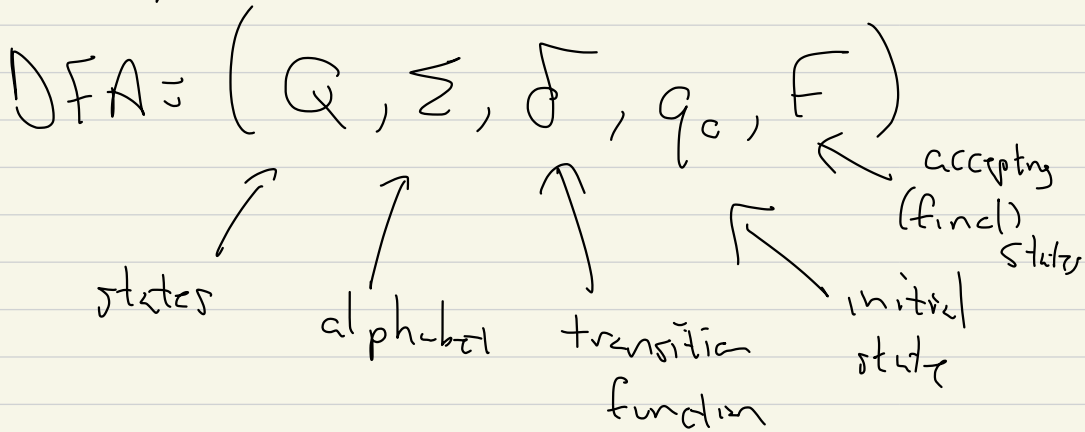 DFA = (Q, Σ, δ, q₀, F)
accepting
(final)
states
states
alphabet
transition
function
initial
state